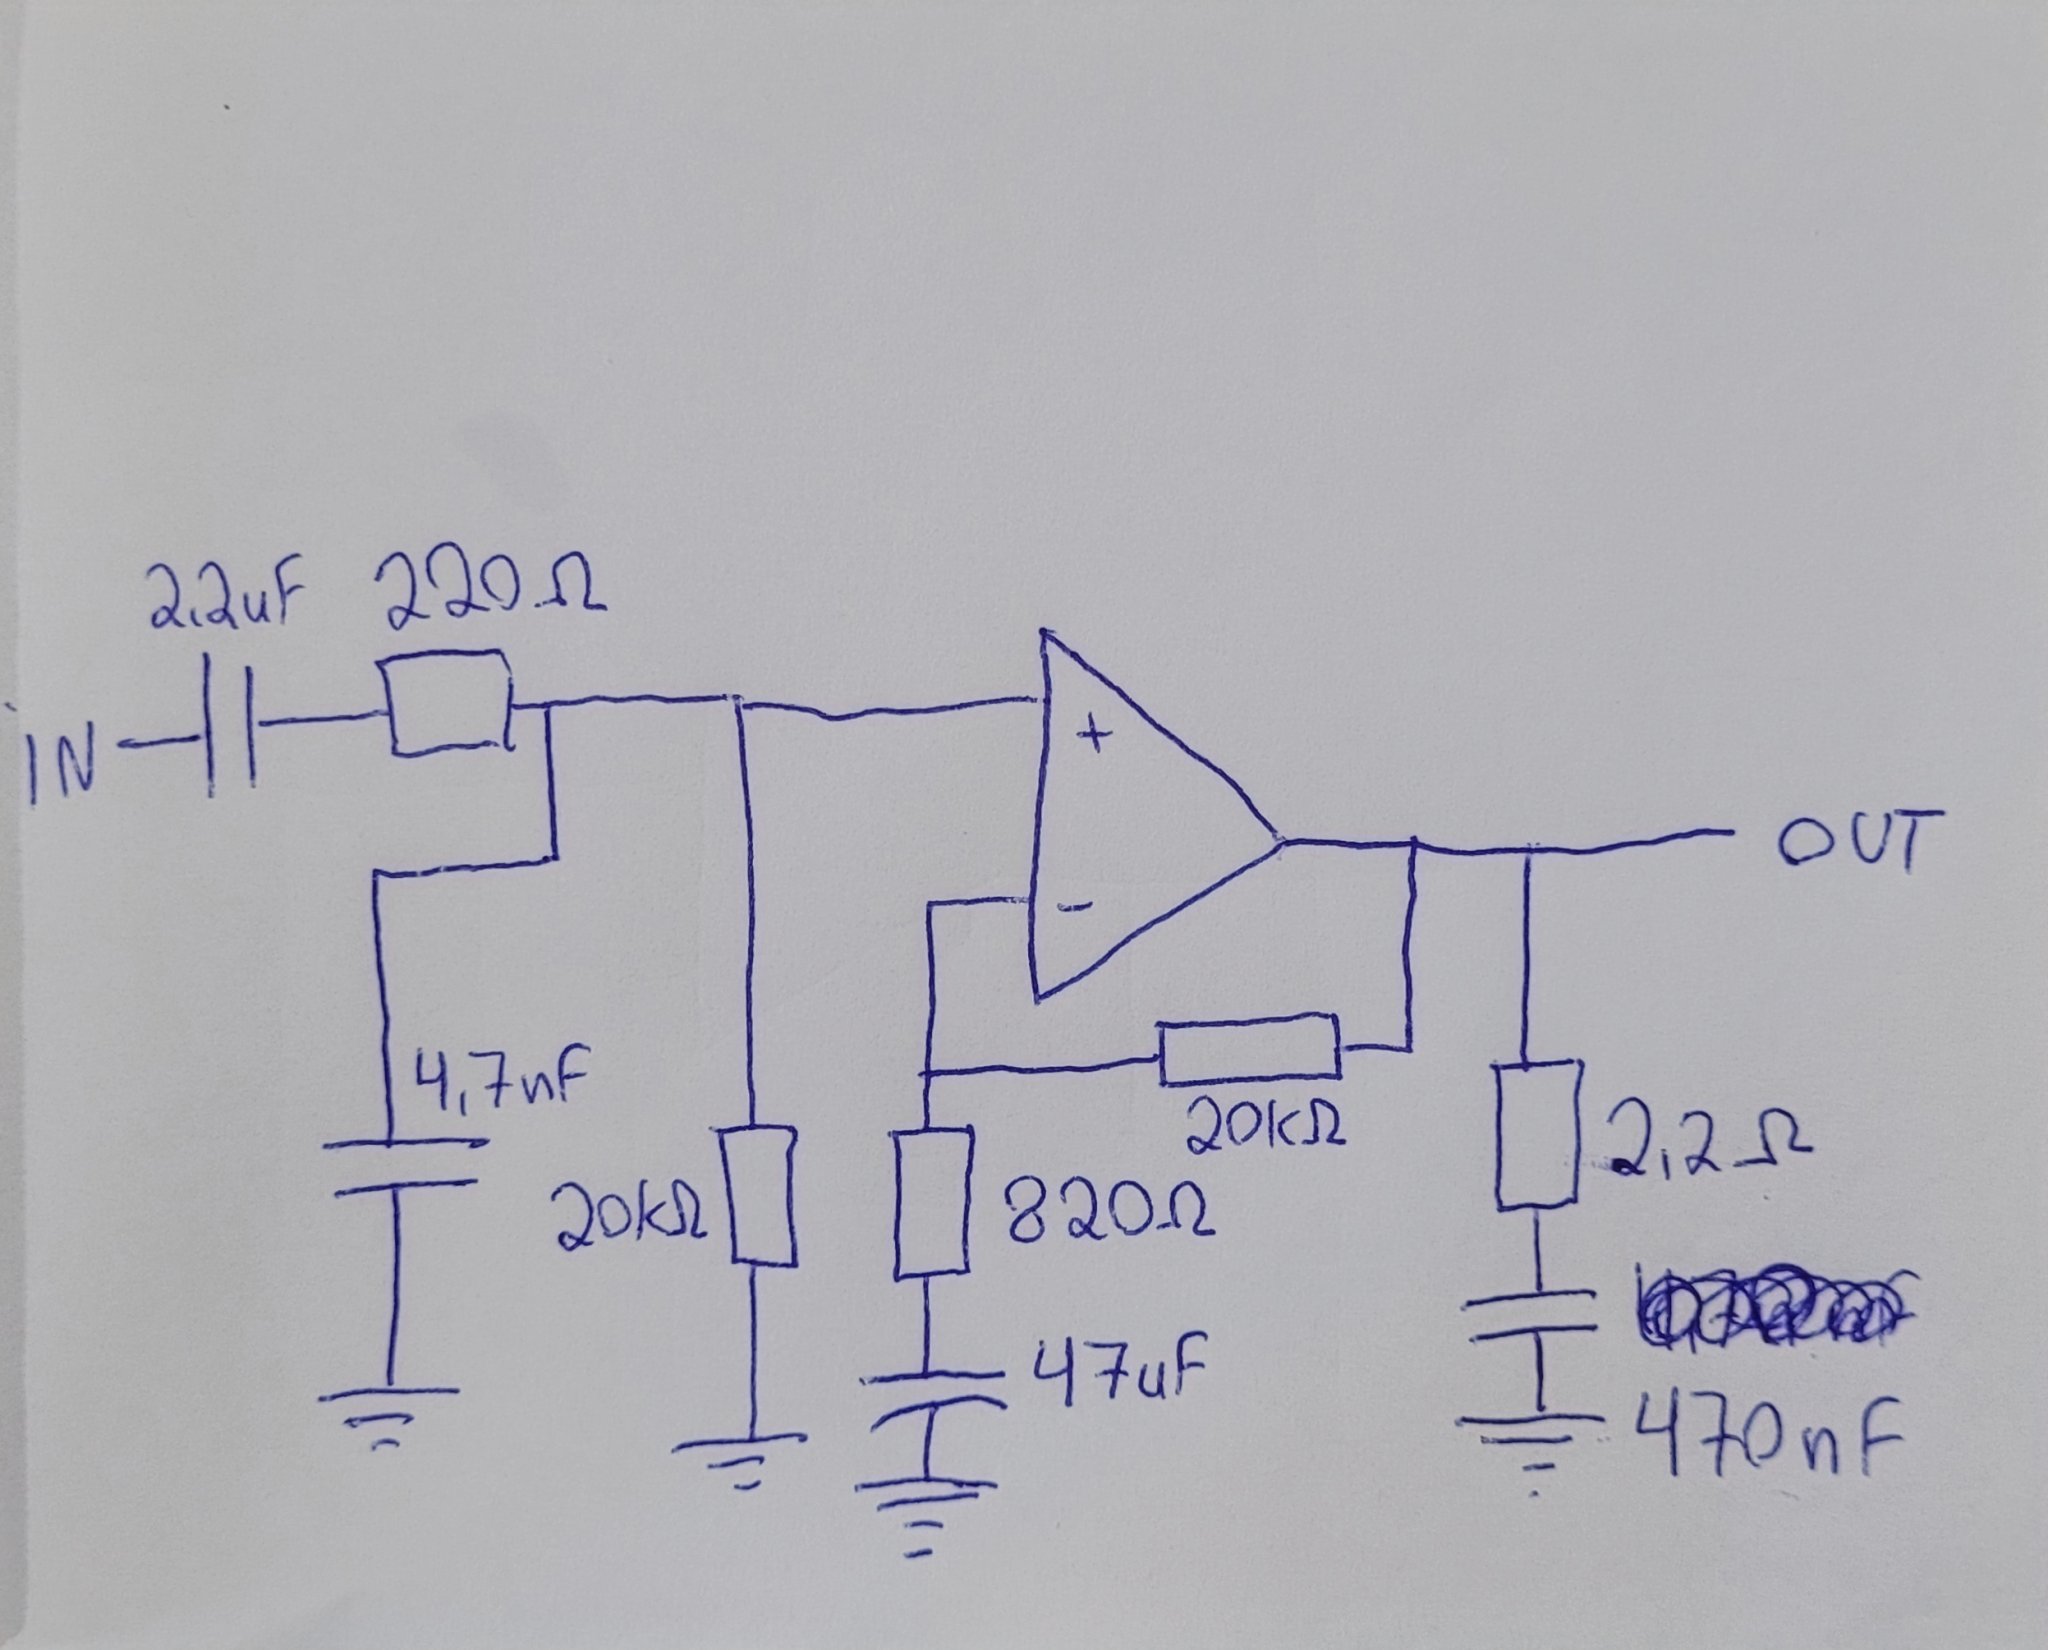 2,2uF 220Ω
IN
+
-
OUT
4,7nF
20kΩ
20kΩ
820Ω
2,2Ω
47uF
470nF